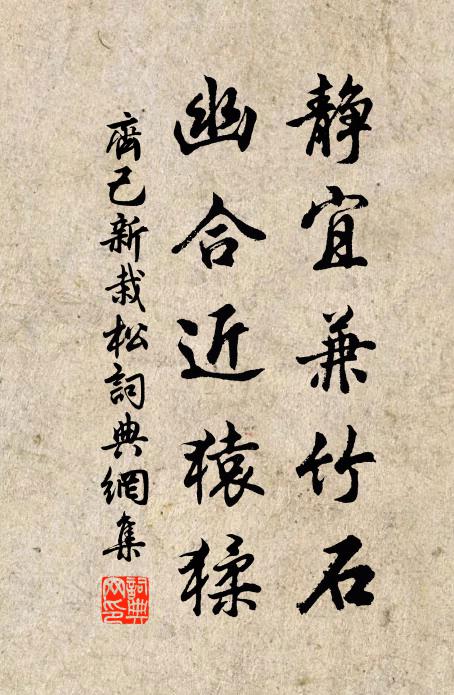 静宜兼竹石
幽合近猿猱
齊己新栽松詞典網集
詞典
网印